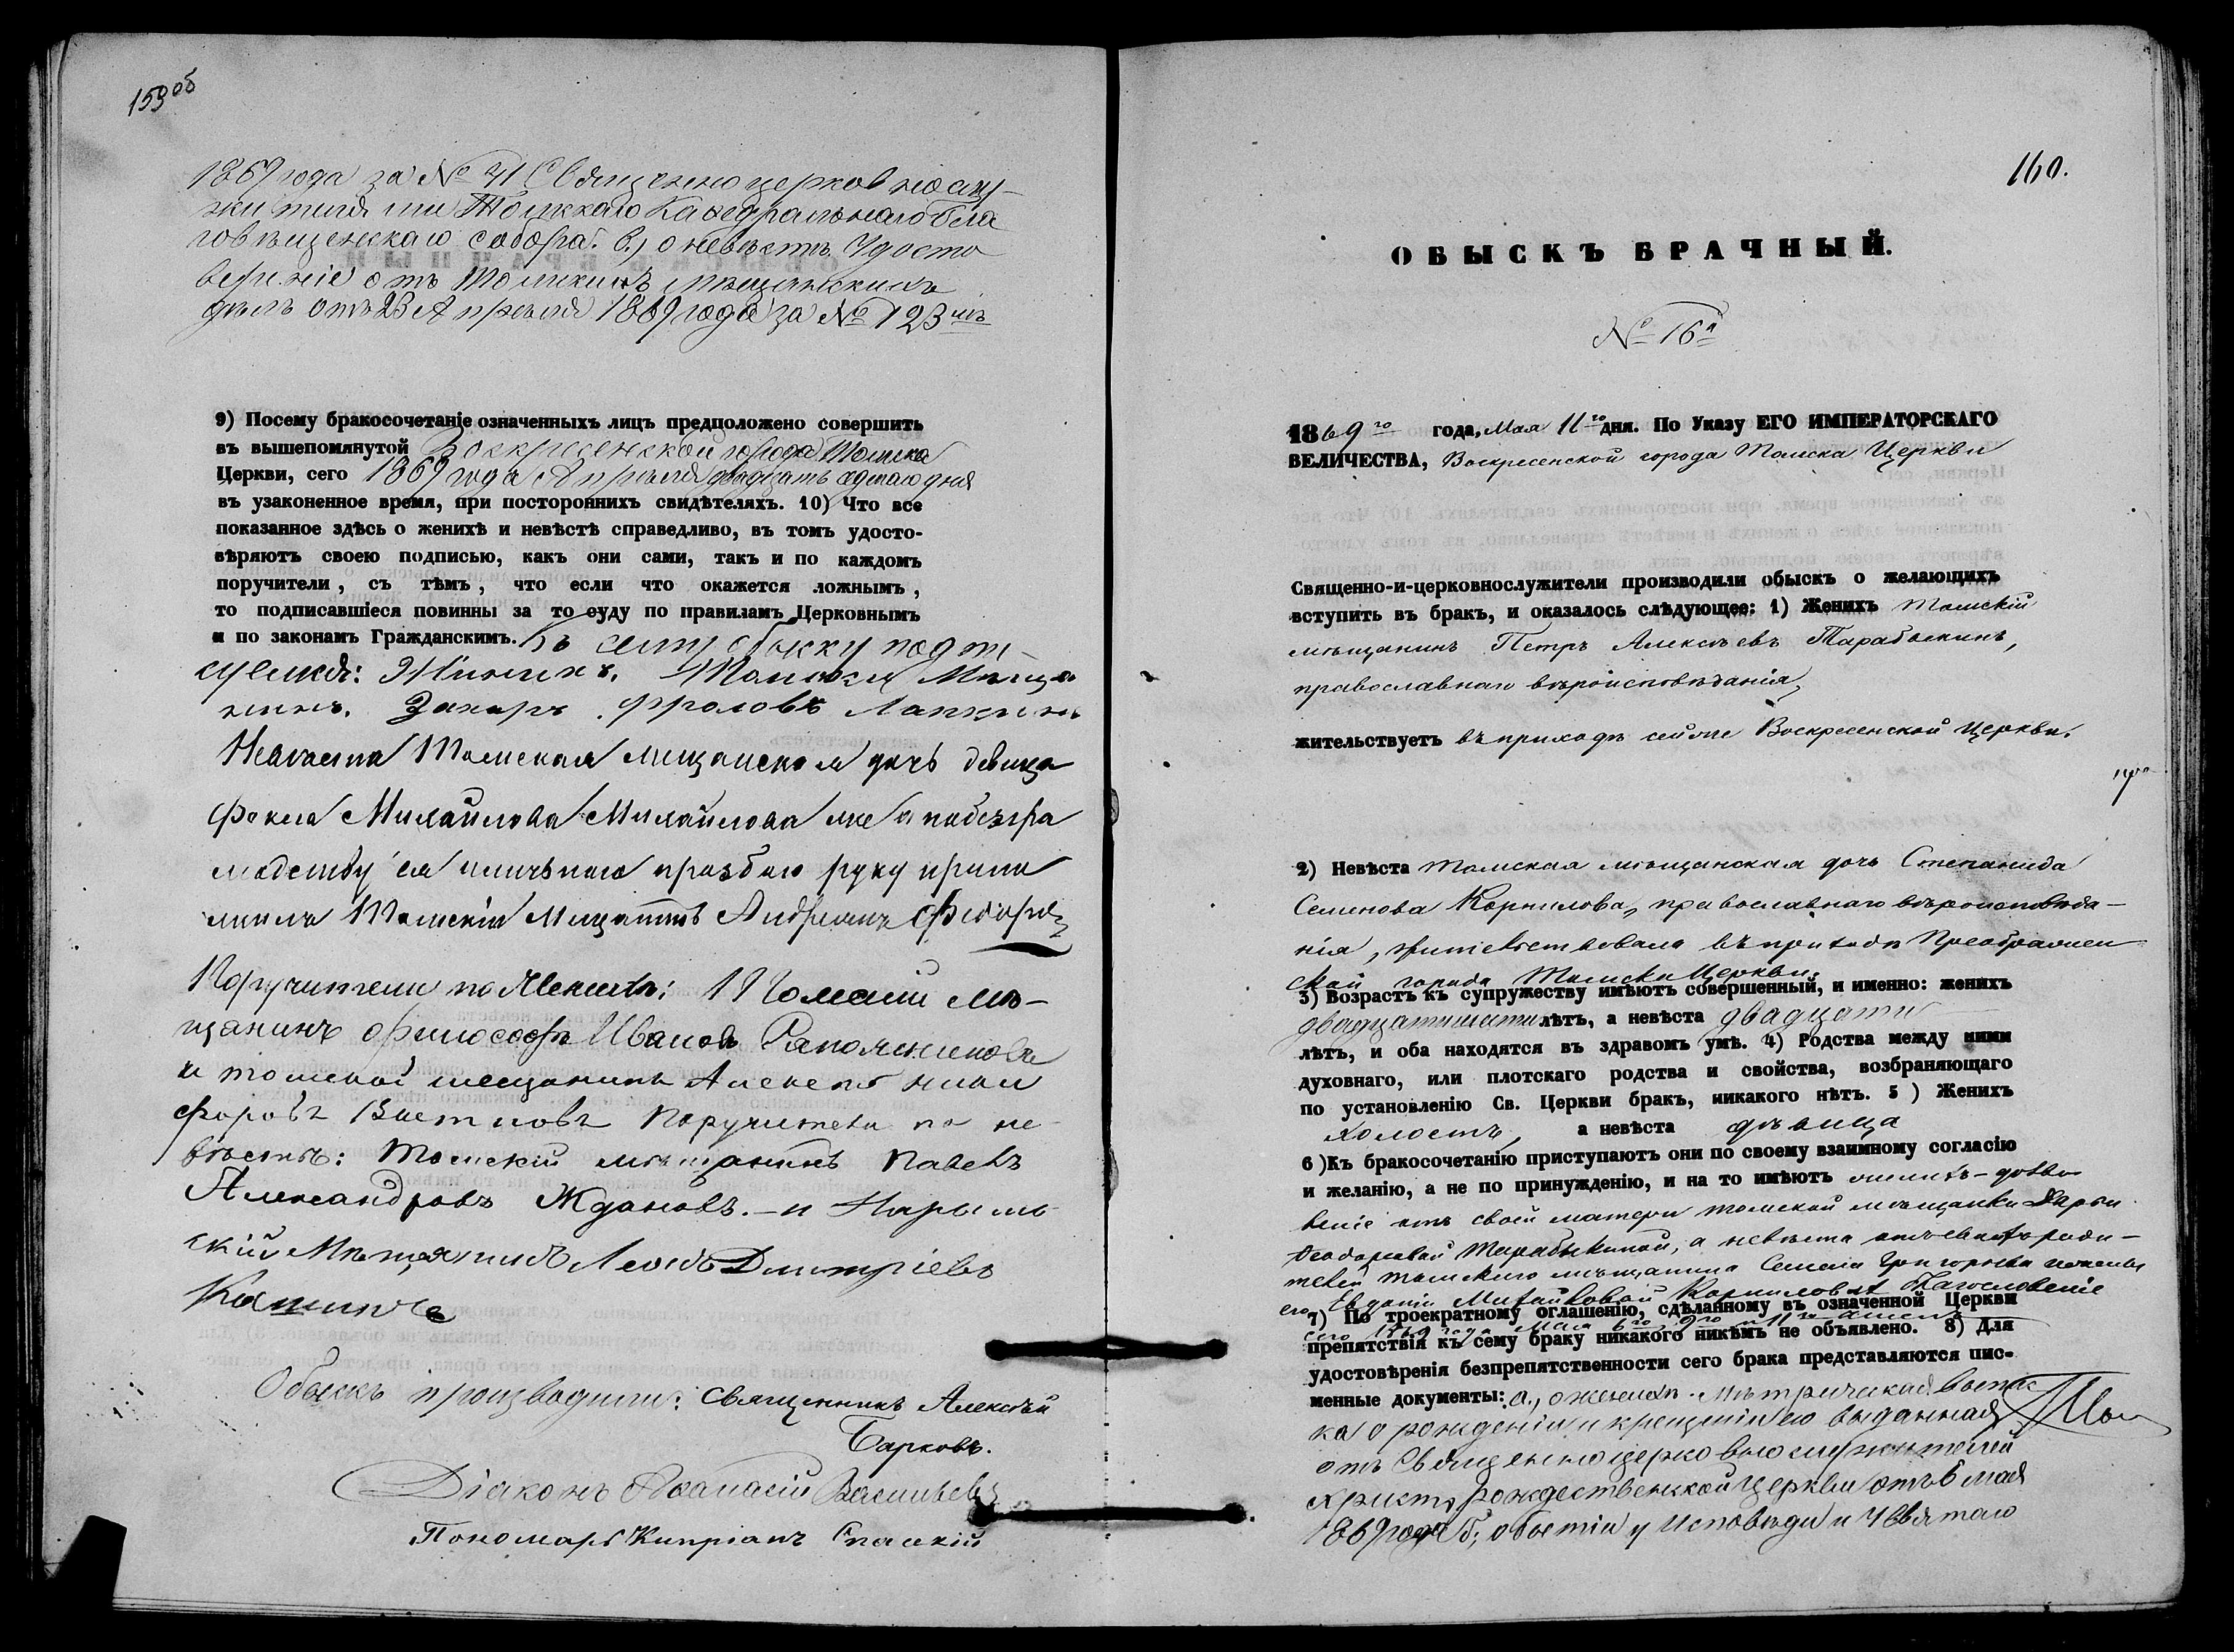 159об
1869 года за № 41 Священноцерковнослу-
жителями Томскаго Каѳедральнаго Бла
говѣщенскаго собора. в., о невѣстѣ Удосто
вереніе отъ Томскихъ Мѣщанскихъ
дѣлъ отъ 23 Апрѣля 1869 года за № 123мъ
9) Посему бракосочетаніе означенныхъ лицъ предположено совершить
въ вышепомянутой Воскресенской города Томска
Церкви, сего 1869 года Апрѣля двадцать седмаго дня
въ узаконенное время, при постороннихъ свидѣтеляхъ. 10) Что все
показанное здѣсь о женихѣ и невѣстѣ справедливо, въ томъ удосто-
вѣряютъ своею подписью, какъ они сами, такъ и по каждомъ
поручители, съ тѣмъ, что если что окажется ложнымъ,
то подписавшіеся повинны за то суду по правиламъ Церковнымъ
и по законамъ Гражданскимъ. Къ сему обыску подпи-
Женихъ. Томскій Мѣща
нинъ. Захаръ Фроловъ Лапкинъ
Невѣста Томская мищанская дочь девица
Фекла Михайлова Михайлова а по безгра
модству ея личьною прозбою руку прило
жилъ Томскій Мищанинъ Андреянъ Федоров
Поручители по Женихѣ: Томскій мѣ-
щанинъ Философъ Ивановъ
и томской мещанинъ Алексей Ники
форовъ Поручители по не-
вѣстѣ: Томскій мѣщанинъ Павелъ
Александровъ Ждановъ. - и Нарым-
скій Мѣщанинъ Леонъ Дмитріевъ
Кашинъ
Обыскъ производили: Священникъ Алексѣй
Барковъ.
Діаконъ Аѳанасій Васильевъ
Пономарь Кипріанъ Спасскій
160.
ОБЫСКЪ БРАЧНЫЙ.
№ 16й
1869го года, Мая 11го дня. По Указу ЕГО ИМПЕРАТОРСКАГО
ВЕЛИЧЕСТВА, Воскресенской города Томска Церкви
Священно-и-церковнослужители производили обыскъ о желающихъ
вступить въ бракъ, и оказалось слѣдующее: 1) Женихъ Томскій
мѣщанинъ Петръ Алексѣевъ Тарабыкинъ,
православнаго вѣроисповѣданія,
жительствуетъ въ приходѣ сей же Воскресенской Церкви.
2) Невѣста томская мѣщанская дочь Степанида
Семенова Корнилова, православнаго вѣроисповѣда-
нія, жительствовала въ приходѣ Преображен-
ской города Томска Церкви.
3) Возрастъ къ супружеству имѣютъ совершенный, и именно: женихъ
лѣтъ, а невѣста двадцати
лѣтъ, и оба находятся въ здравомъ умѣ. 4) Родства между ними
духовнаго, или плотскаго родства и свойства, возбраняющаго
по установленію Св. Церкви бракъ, никакого нѣтъ. 5) Женихъ
холостъ, а невѣста дѣвица
6) Къ бракосочетанію приступаютъ они по своему взаимному согласію
и желанію, а не по принужденію, и на то имѣютъ женихъ - дозво
леніе отъ своей матери томской мѣщанки Дарьи
Ѳеодоровой Тарабыкиной, а невѣста отъ своихъ роди-
телей томскаго мѣщанина Семена Григорьева и жены
его Евдокіи Михайловой Корниловыхъ благословеніе
7) По троекратному оглашенію, сдѣланному въ означенной Церкви
сего 1869 года Мая 6го, 9го и 11го числъ
препятствія къ сему браку никакого никѣмъ не объявлено. 8) Для
удостовѣренія безпрепятственности сего брака представляются пис-
менные документы: а., о женихѣ. Метрическая выпис
ка о рожденіи и крещеніи его выданная
отъ Священноцерковнослужителей
Христорождественской Церкви отъ 6 мая
1869 года б; о бытіи у Исповѣди и У Святаго